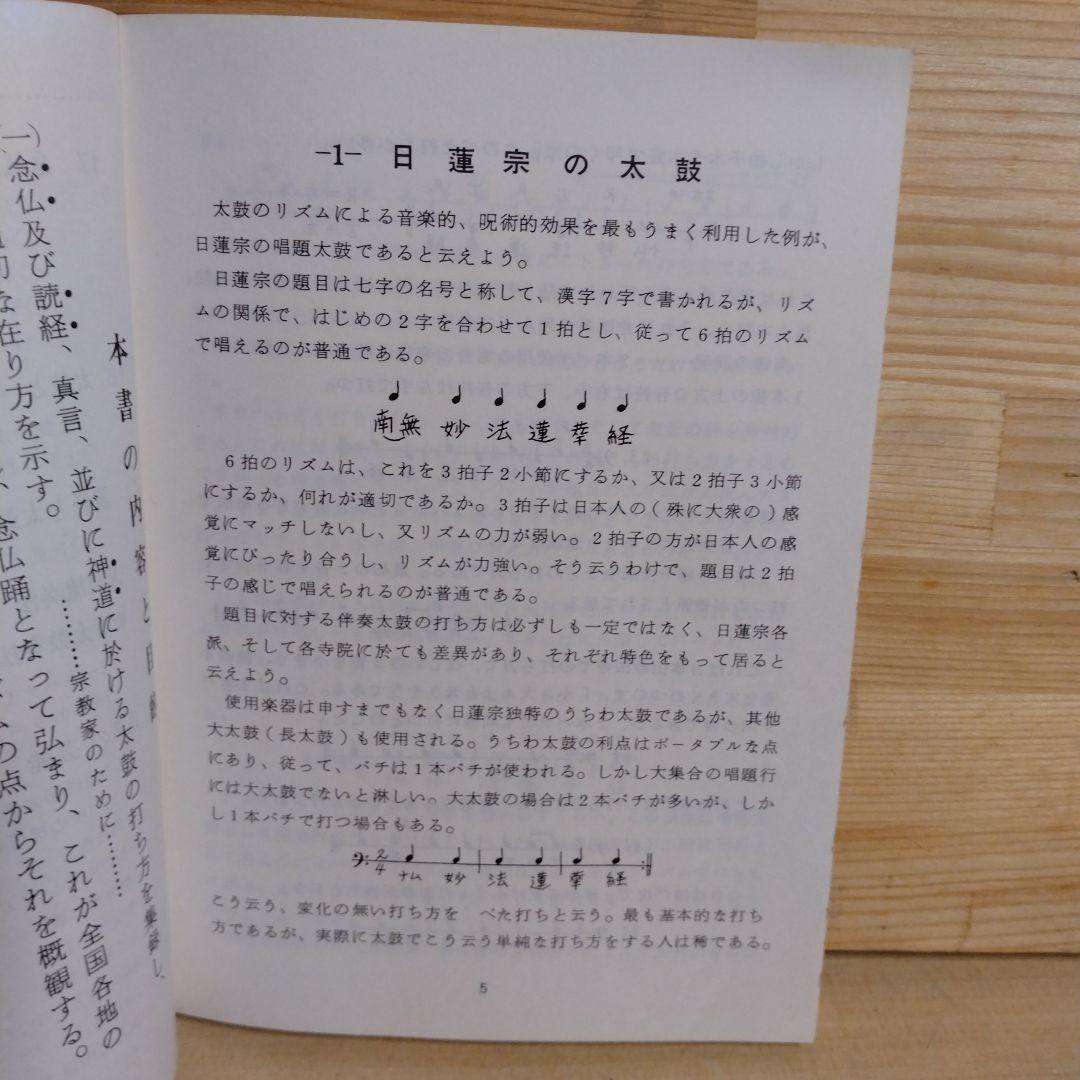 -1- 日蓮宗の太鼓
太鼓のリズムによる音楽的、呪術的効果を最もうまく利用した例が、
日蓮宗の唱題太鼓であると云えよう。
日蓮宗の題目は七字の名号と称して、漢字7字で書かれるが、リズ
ムの関係で、はじめの2字を合わせて1拍とし、従って6拍のリズム
で唱えるのが普通である。
南無 妙 法 蓮 華 経
6拍のリズムは、これを3拍子2小節にするか、又は2拍子3小節
にするか、何れが適切であるか。3拍子は日本人の(殊に大衆の)感
覚にマッチしないし、又リズムの力が弱い。2拍子の方が日本人の感
覚にぴったり合うし、リズムが力強い。そう云うわけで、題目は2拍
子の感じで唱えられるのが普通である。
題目に対する伴奏太鼓の打ち方は必ずしも一定ではなく、日蓮宗各
派、そして各寺院に於ても差異があり、それぞれ特色をもって居ると
云えよう。
使用楽器は申すまでもなく日蓮宗独特のうちわ太鼓であるが、其他
大太鼓(長太鼓)も使用される。うちわ太鼓の利点はポータブルな点
にあり、従って、バチは1本バチが使われる。しかし大集合の唱題行
には大太鼓でないと淋しい。大太鼓の場合は2本バチが多いが、しか
し1本バチで打つ場合もある。
2/4 ナム 妙 法 蓮 華 経
こう云う、変化の無い打ち方を べた打ちと云う。最も基本的な打ち
方であるが、実際に太鼓でこう云う単純な打ち方をする人は稀である。
5
本書の内容と目
………宗教家のために………
(一)念仏及び読経、真言、並びに神道に於ける太鼓の打ち方を
な在り方を示す。
念仏踊となって弘まり、これが全国各地の
の点からそれを概観する。